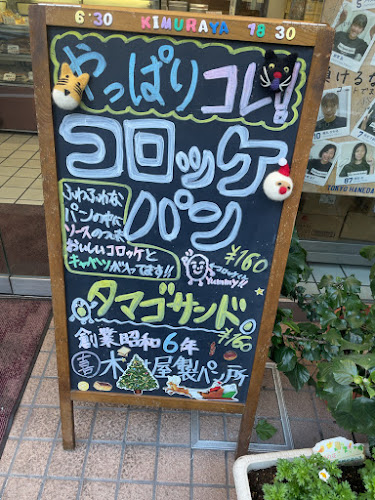 6:30 KIMURAYA 18:30
やっぱりコレ!
コロッケ
パン
ふわふわな
パンの中に
ソースのつった
おいしいコロッケと
キャベツが入ってます!!
¥160
Yummy!!
タマゴサンド
¥160
創業昭和6年
㐂木村屋製パン所
TOKYO HANEDA